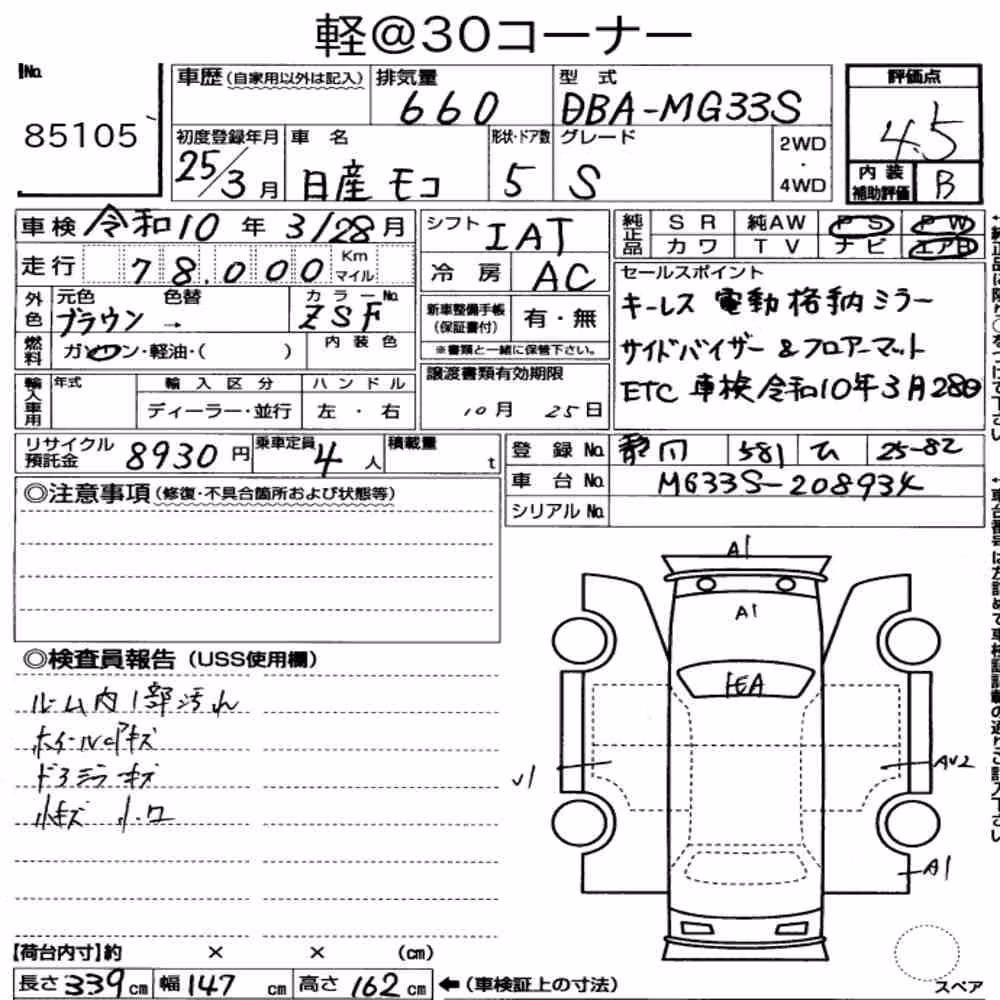 軽@30コーナー
No. 85105
車歴 (自家用以外は記入) 排気量 660 型式 DBA-MG33S
初度登録年月 25/3月 車名 日産 モコ 形状・ドア数 5 グレード S 2WD・4WD
評価点 4.5
内装補助評価 B
車検 令和10年3/28月
走行 78.000 Km マイル
外色 元色 ブラウン → 色替 カラーNo. ZSF
燃料 ガソリン・軽油・( ) 内装色
輸入車用 年式 輸入区分 ディーラー・並行 ハンドル 左・右
シフト IAT
冷房 AC
新車整備手帳(保証書付) 有・無
※書類と一緒に保管下さい。
譲渡書類有効期限
10月 25日
純正品 SR 純AW PS PW
カワ TV ナビ エアB
セールスポイント
キーレス 電動格納ミラー
サイドバイザー & フロアーマット
ETC 車検令和10年3月28日
リサイクル預託金 8930円 乗車定員 4人 積載量 t
登録No. 静岡 581 ひ 25-82
車台No. MG33S-208934
シリアルNo.
◎注意事項 (修復・不具合箇所および状態等)
◎検査員報告 (USS使用欄)
ルーム内1部汚れ
ホイールcPキズ
ドアミラーキズ
小キズ 小凹
A1
A1
EA
V1
AU2
A1
スペア
【荷台内寸】約 × × (cm)
長さ 339cm 幅 147cm 高さ 162cm ←(車検証上の寸法)